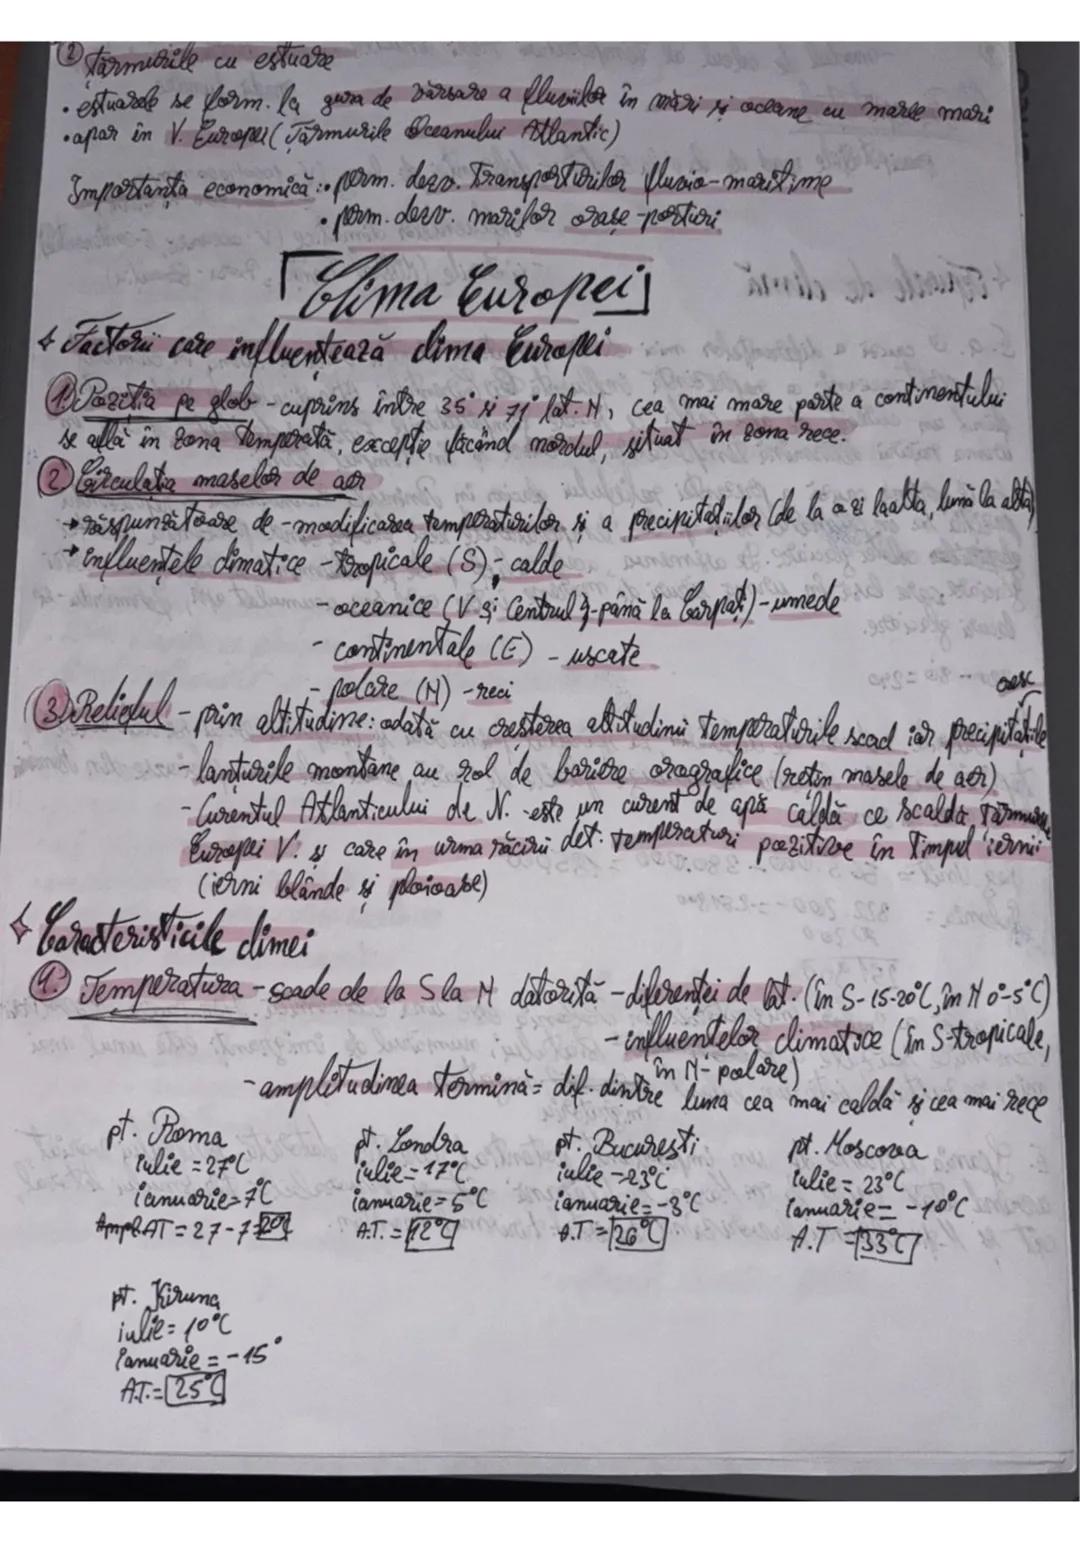 ② Țărmurile cu estuare
• estuarele se form. la gura de vărsare a fluviilor în mări și oceane cu maree mari
• apar în V. Europei (Țărmurile Oceanului Atlantic)
Importanța economică: • perm. dezv. transporturilor fluvio-maritime
• perm. dezv. marilor orașe-porturi
Clima Europei
Factorii care influențează clima Europei
1. Poziția pe glob - cuprins între 35° și 71° lat. N, cea mai mare parte a continentului
se află în zona temperată, excepție făcând nordul, situat în zona rece.
② Circulația maselor de aer
→ răspunzătoare de - modificarea temperaturilor și a precipitațiilor (de la o zi la alta, lună la alta)
→ influențele climatice - tropicale (S) - calde
- oceanice (V și Centrul - până la Carpați) - umede
- continentale (E) - uscate
- polare (N) - reci
3. Relieful - prin altitudine: odată cu creșterea altitudinii temperaturile scad iar precipitațiile cresc
- lanțurile montane au rol de bariere orografice (rețin masele de aer)
- Curentul Atlanticului de N. - este un curent de apă caldă ce scaldă țărmurile
Europei V. și care în urma răcirii det. temperaturi pozitive în timpul iernii
(ierni blânde și ploioase)
Caracteristicile climei
1. Temperatura - scade de la S la N datorită - diferenței de lat. (în S - 15-20°C, în N 0°-5°C)
- influențelor climatice (în S - tropicale,
în N - polare)
- amplitudinea termină = dif. dintre luna cea mai caldă și cea mai rece
pt. Roma pt. Londra pt. București pt. Moscova
iulie = 27°C iulie = 17°C iulie - 23°C iulie = 23°C
ianuarie = 7°C ianuarie = 5°C ianuarie = -3°C ianuarie = -10°C
AT = 27 - 7 = 20° A.T. = 12°C A.T = 26°C A.T = 33°C
pt. Kiruna
iulie = 10°C
ianuarie = -15°
A.T. = 25°C